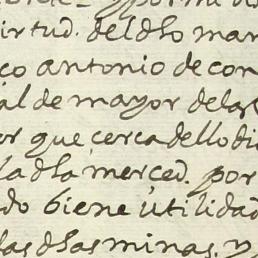 virtud. del dho man
co antonio de con
al de mayor delas
or que, cerca dello di
la dha merced. por
do biene utilidad
las dhas minas. y